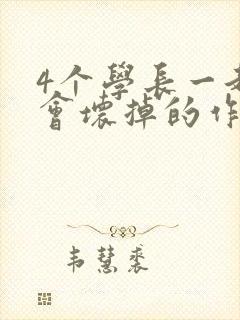 4个學長一
會壞掉的作
韦慧裘